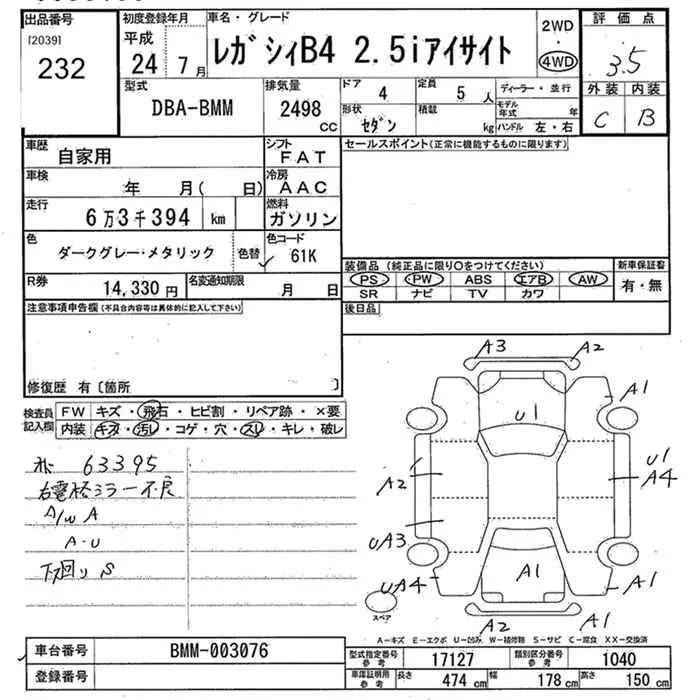 出品番号 初度登録年月 車名・グレード 2WD 評価点
[2039] 平成 ・
232 24年7月 レガシィB4 2.5iアイサイト 4WD 3.5
型式 排気量 ドア 4 定員 5人 ディーラー・並行 外装 内装
DBA-BMM 2498 cc 形状 セダン 積載 kg モデル年式 年 ハンドル 左・右 C B
車歴 自家用 シフト FAT セールスポイント(正常に機能するものに限ります)
車検 年 月( 日) 冷房 AAC
走行 6万3千394 km 燃料 ガソリン
色 ダークグレー・メタリック 色替 色コード 61K
装備品 (純正品に限り○をつけてください) 新車保証書
R券 14,330円 名変通知期限 月 日 PS PW ABS エアB AW 有・無
SR ナビ TV カワ
注意事項申告欄(不具合内容等は具体的に記入して下さい) 後日品
修復歴 有〔箇所 〕
検査員 FW キズ・飛石・ヒビ割・リペア跡・×要
記入欄 内装 キズ・汚レ・コゲ・穴・スレ・キレ・破レ
63395
右電格ミラー不良
A/W A
A・U
下廻り S
A3 A2
A1
U1
U1
A2 A4
UA3
UA4 A1 A1
A2 A1
スペア
A-キズ E-エクボ U-凹み W-補修跡 S-サビ C-腐食 XX-交換済
車台番号 BMM-003076 型式指定番号 参考 17127 類別区分番号 参考 1040
登録番号 車庫証明用 参考 長さ 474 cm 幅 178 cm 高さ 150 cm